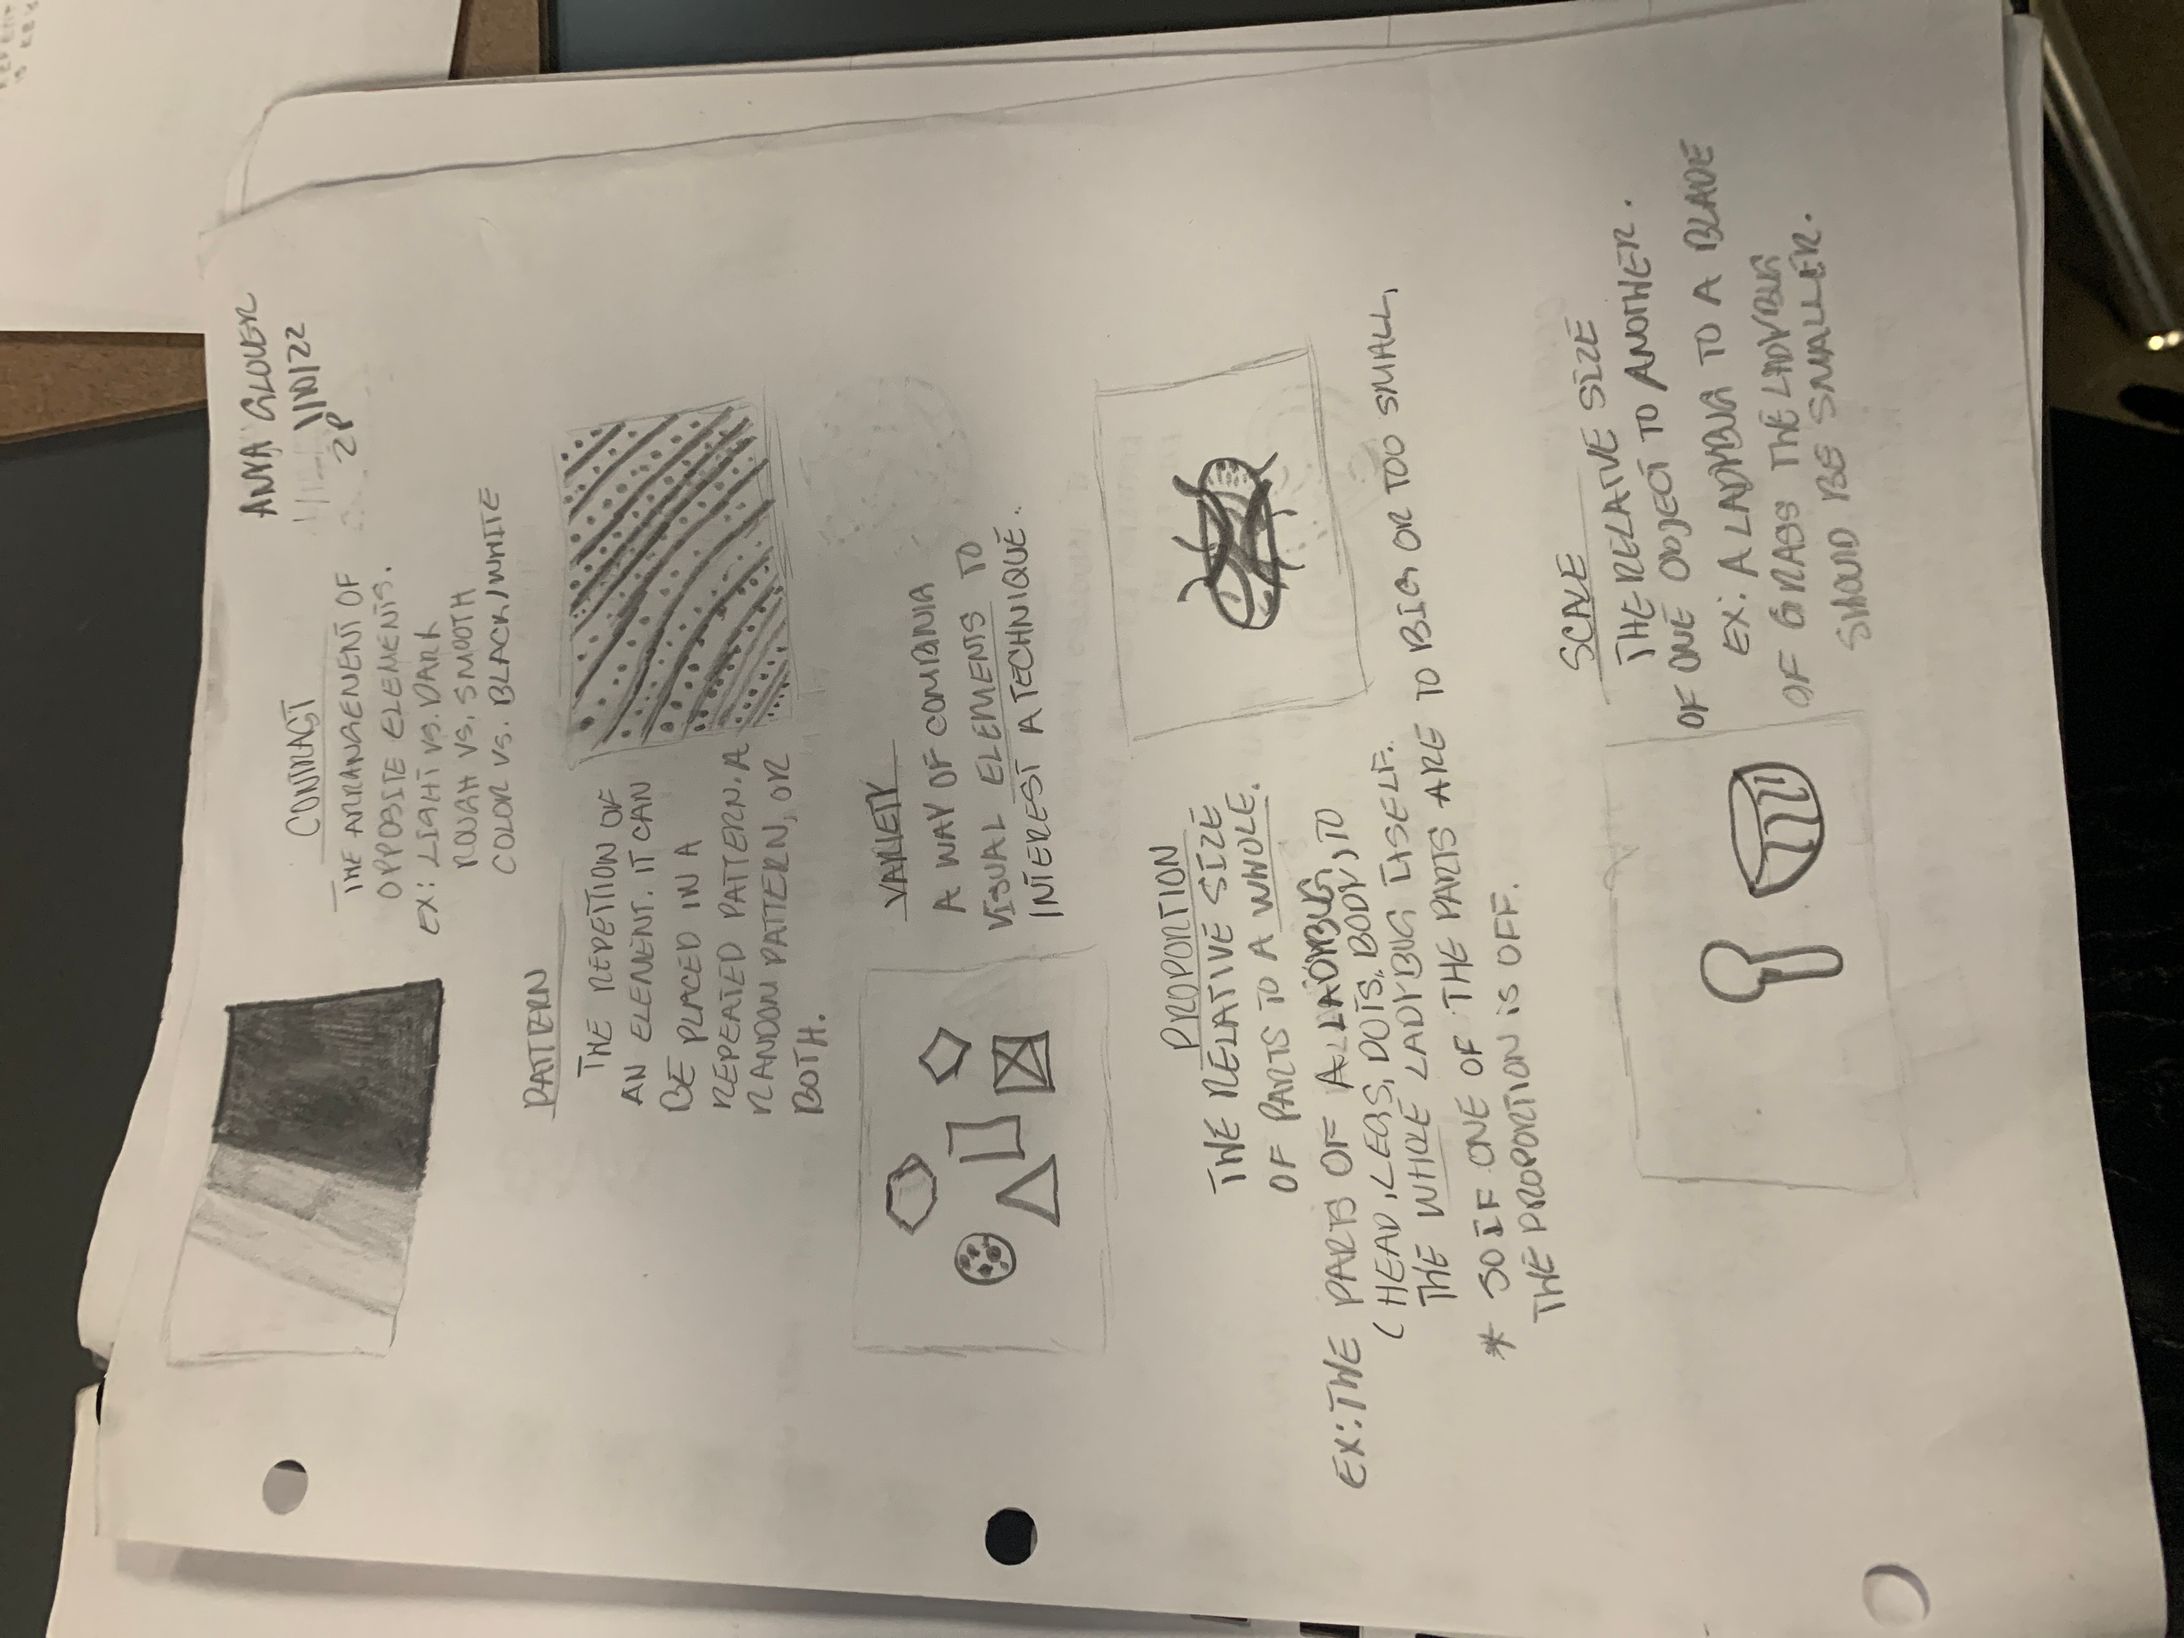 ANYA GLOVER
1/10/22
2P
CONTRAST
THE ARRANGEMENT OF
OPPOSITE ELEMENTS.
EX: LIGHT VS. DARK
ROUGH VS. SMOOTH
COLOR VS. BLACK/WHITE
PATTERN
THE REPETITION OF
AN ELEMENT. IT CAN
BE PLACED IN A
REPEATED PATTERN. A
RANDOM PATTERN, OR
BOTH.
VARIETY
A WAY OF COMBINIG
VISUAL ELEMENTS TO
INTEREST A TECHNIQUE.
PROPORTION
THE RELATIVE SIZE
OF PARTS TO A WHOLE.
EX: THE PARTS OF A LADYBUG,
(HEAD, LEGS, DOTS, BODY, TO
THE WHOLE LADYBUG ITSELF.
* SO IF ONE OF THE PARTS ARE TO BIG OR TOO SMALL,
THE PROPORTION IS OFF.
SCALE
THE RELATIVE SIZE
OF ONE OBJECT TO ANOTHER.
EX: A LADYBUG TO A BLADE
OF GRASS THE LADYBUG
SHOULD BE SMALLER.